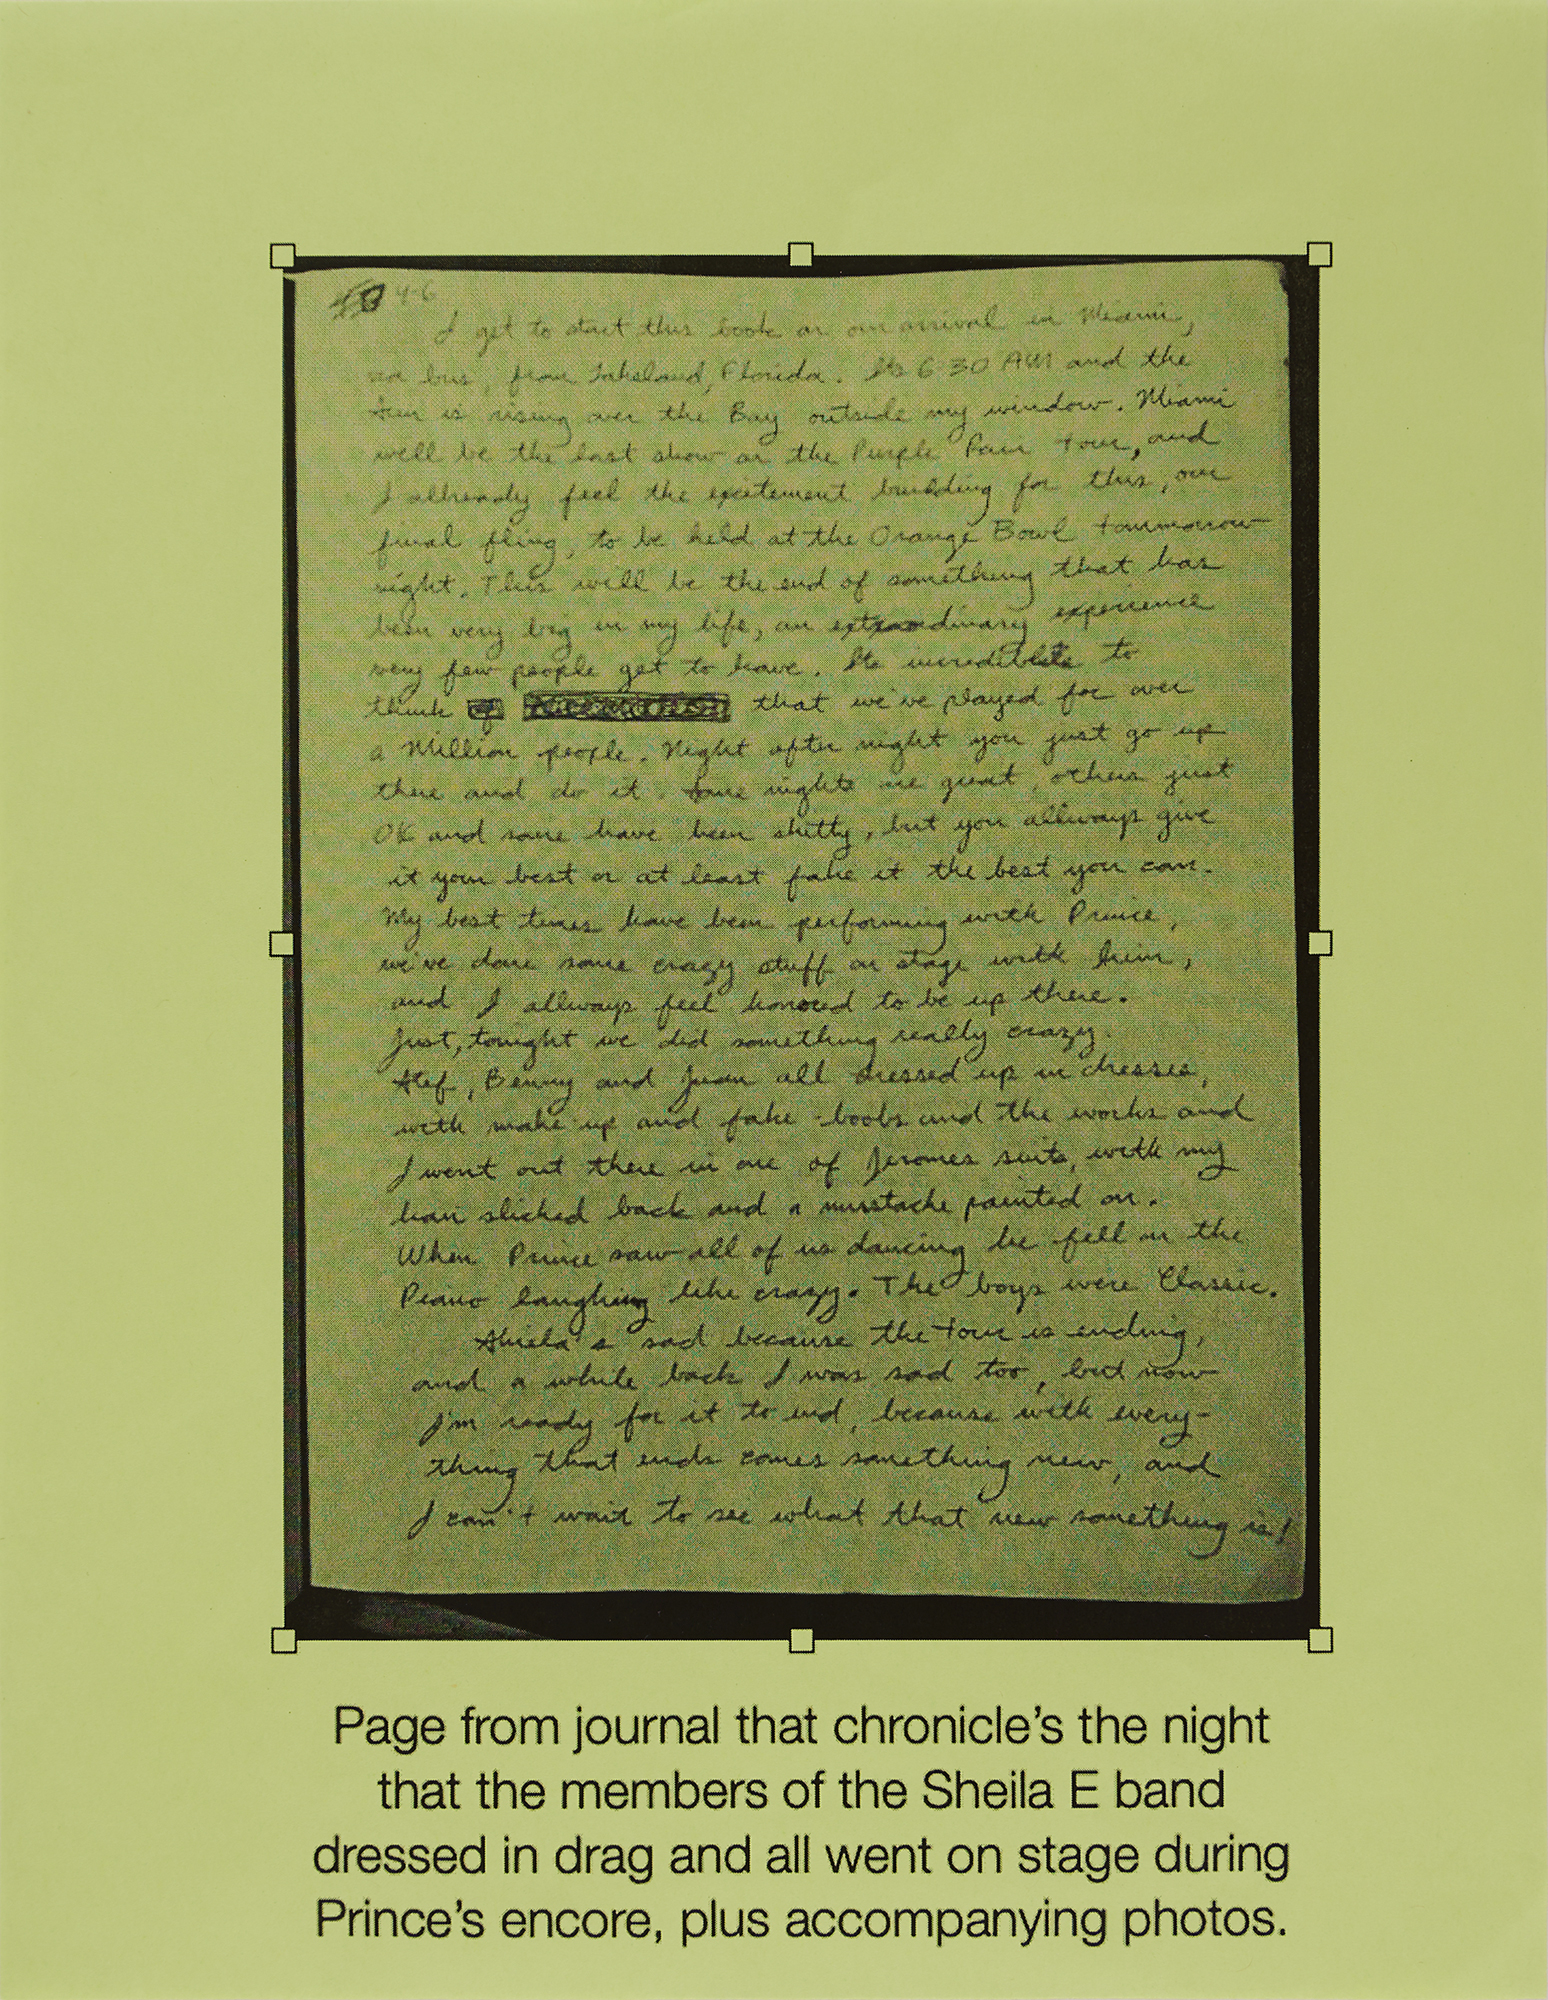 4-6
I get to start this book on our arrival in Miami,
via bus, from Lakeland, Florida. Its 6:30 AM and the
Sun is rising over the Bay outside my window. Miami
will be the last show on the Purple Rain Tour, and
I allready feel the excitement building for this, our
final fling, to be held at the Orange Bowl tommorrow
night. This will be the end of something that has
been very big in my life, an extraordinary experience
very few people get to have. Its incredible to
think that we've played for over
a Million people. Night after night you just go up
there and do it. Some nights are great, others just
OK and some have been shitty, but you allways give
it your best or at least fake it the best you can.
My best times have been performing with Prince,
we've done some crazy stuff on stage with him,
and I allways feel honored to be up there.
Just, tonight we did something really crazy.
Stef, Benny and Juan all dressed up in dresses,
with make up and fake boobs and the works and
I went out there in one of Jeromes suits, with my
hair slicked back and a mustache painted on.
When Prince saw all of us dancing he fell on the
Piano laughing like crazy. The boys were Classic.
Shiela's sad because the tour is ending,
and a while back I was sad too, but now
I'm ready for it to end, because with every-
thing that ends comes something new, and
I can't wait to see what that new something is!
Page from journal that chronicle's the night
that the members of the Sheila E band
dressed in drag and all went on stage during
Prince's encore, plus accompanying photos.